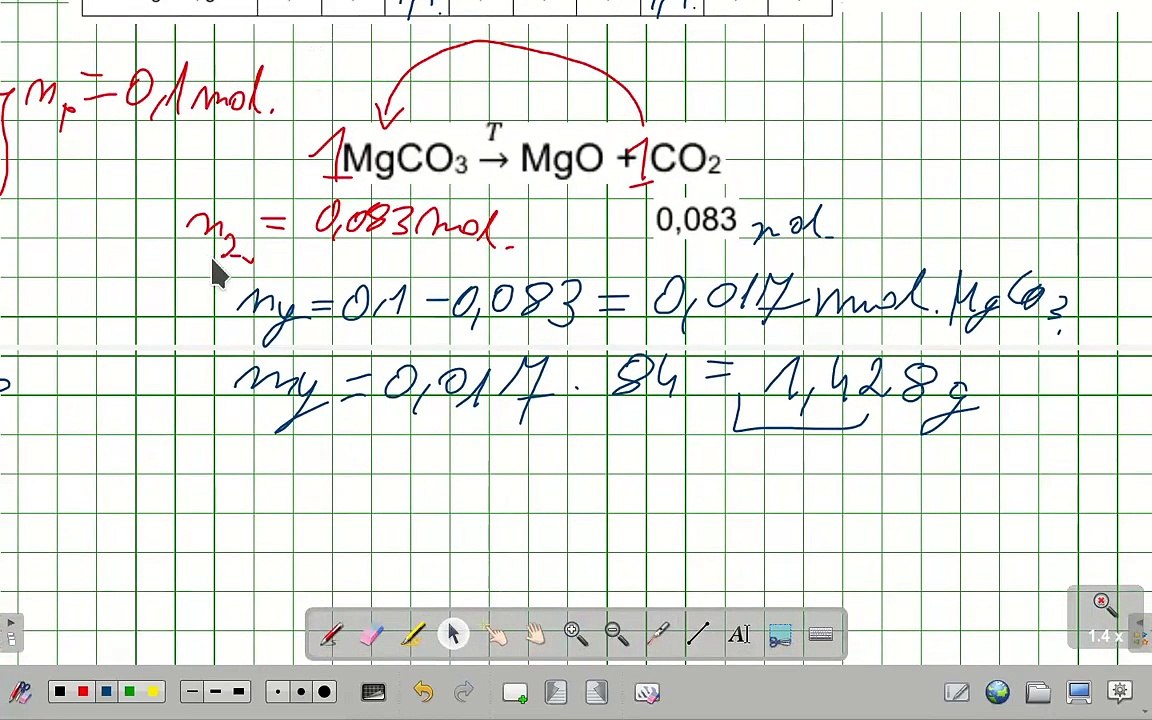 n_p = 0,1 mol.
T
1MgCO₃ → MgO + 1CO₂
n₂ = 0,083 mol. 0,083 mol
ny = 0,1 - 0,083 = 0,017 mol. MgCO₃
my = 0,017 . 84 = 1,428 g
AI
1.4 x